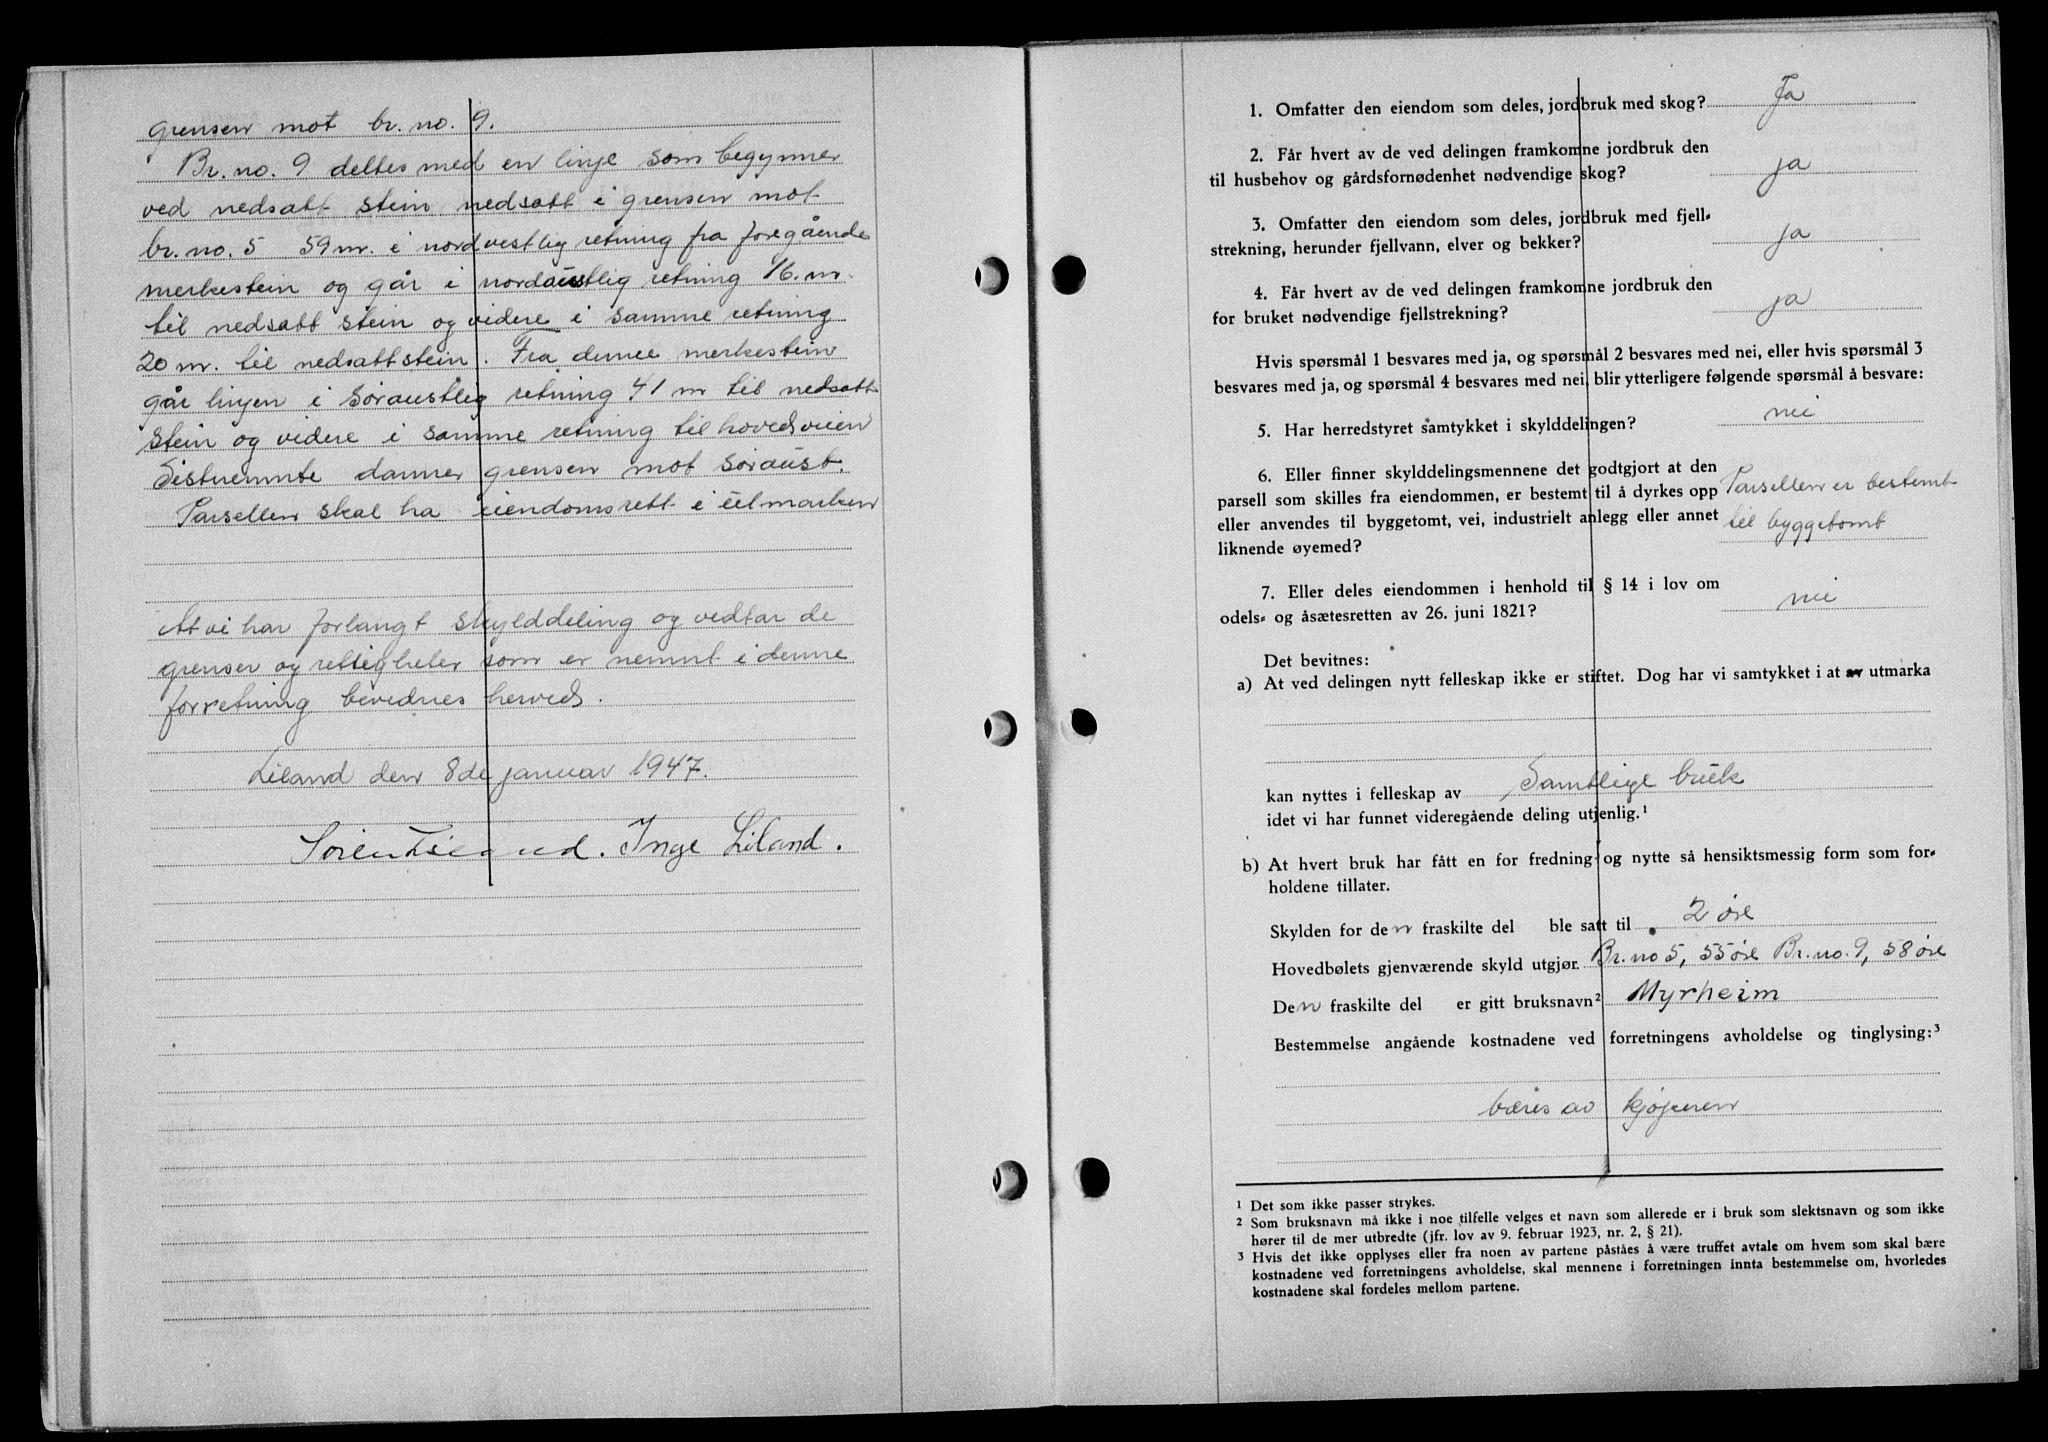 grensen mot br. no. 9.
Br. no. 9 deltes med en linje som begynner
ved nedsatt stein nedsatt i grensen mot
br. no. 5 59 m. i nordvestlig retning fra foregående
merkestein og går i nordaustlig retning 16. m.
til nedsatt stein og videre i samme retning
20 m. til nedsatt stein. Fra denne merkestein
går linjen i søraustleg retning 41 m til nedsatt
stein og videre i samme retning til hovedveien
Sistnemnte danner grensen mot søraust.
Parsellen skal ha eiendomsrett i utmarken
At vi har forlangt skylddeling og vedtar de
grenser og rettigheter som er nemnt i denne
forretning bevidnes herved.
Liland den 8de januar 1947.
Søren Liland. Inge Liland.
1. Omfatter den eiendom som deles, jordbruk med skog? Ja
2. Får hvert av de ved delingen framkomne jordbruk den
til husbehov og gårdsfornødenhet nødvendige skog? ja
3. Omfatter den eiendom som deles, jordbruk med fjell-
strekning, herunder fjellvann, elver og bekker? ja
4. Får hvert av de ved delingen framkomne jordbruk den
for bruket nødvendige fjellstrekning? ja
Hvis spørsmål 1 besvares med ja, og spørsmål 2 besvares med nei, eller hvis spørsmål 3
besvares med ja, og spørsmål 4 besvares med nei, blir ytterligere følgende spørsmål å besvare:
5. Har herredstyret samtykket i skylddelingen? nei
6. Eller finner skylddelingsmennene det godtgjort at den
parsell som skilles fra eiendommen, er bestemt til å dyrkes opp Parsellen er bestemt
eller anvendes til byggetomt, vei, industrielt anlegg eller annet til byggetomt
liknende øyemed?
7. Eller deles eiendommen i henhold til § 14 i lov om
odels- og åsætesretten av 26. juni 1821? nei
Det bevitnes:
a) At ved delingen nytt felleskap ikke er stiftet. Dog har vi samtykket i at av utmarka
kan nyttes i felleskap av Samtlige bruk
idet vi har funnet videregående deling utjenlig.¹
b) At hvert bruk har fått en for fredning og nytte så hensiktsmessig form som for-
holdene tillater.
Skylden for den fraskilte del ble satt til 2 øre
Hovedbølets gjenværende skyld utgjør. Br. no 5, 55 øre Br. no. 9, 58 øre
Den fraskilte del er gitt bruksnavn² Myrheim
Bestemmelse angående kostnadene ved forretningens avholdelse og tinglysing:³
bæres av kjøperen
¹ Det som ikke passer strykes.
² Som bruksnavn må ikke i noe tilfelle velges et navn som allerede er i bruk som slektsnavn og som ikke
hører til de mer utbredte (jfr. lov av 9. februar 1923, nr. 2, § 21).
³ Hvis det ikke opplyses eller fra noen av partene påståes å være truffet avtale om hvem som skal bære
kostnadene ved forretningens avholdelse, skal mennene i forretningen innta bestemmelse om, hvorledes
kostnadene skal fordeles mellom partene.